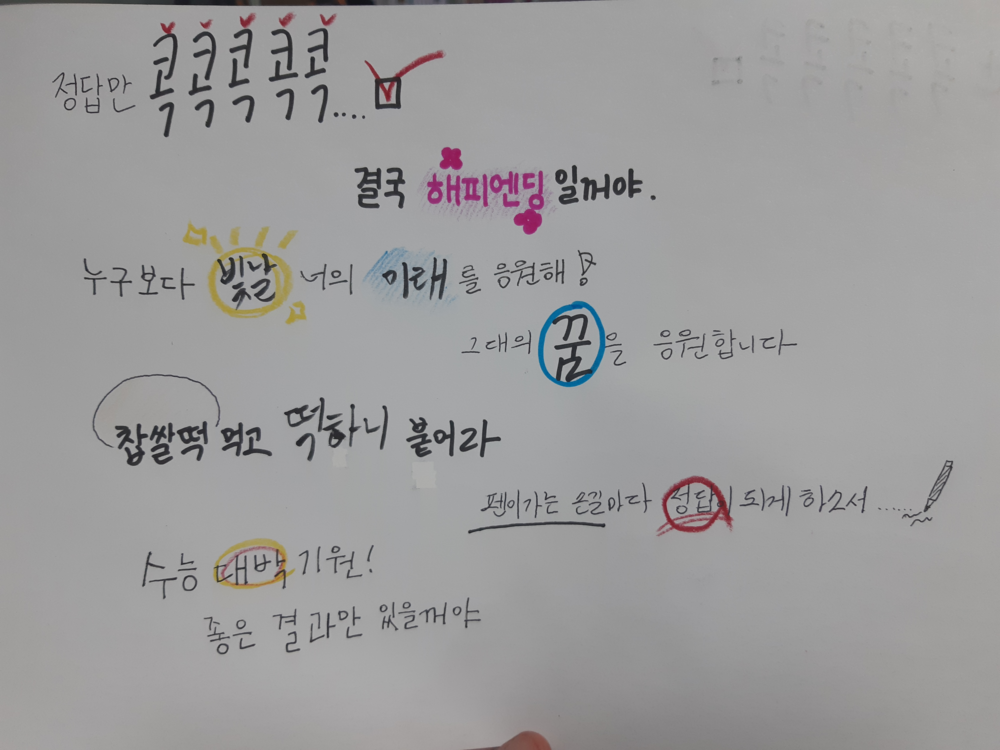 정답만 콕콕콕콕콕....
결국 해피엔딩일꺼야.
누구보다 빛날 너의 미래를 응원해!
그대의 꿈을 응원합니다
찹쌀떡 먹고 떡하니 붙어라
펜이가는 손길마다 정답이 되게 하소서......
수능 대박 기원!
좋은 결과만 있을꺼야